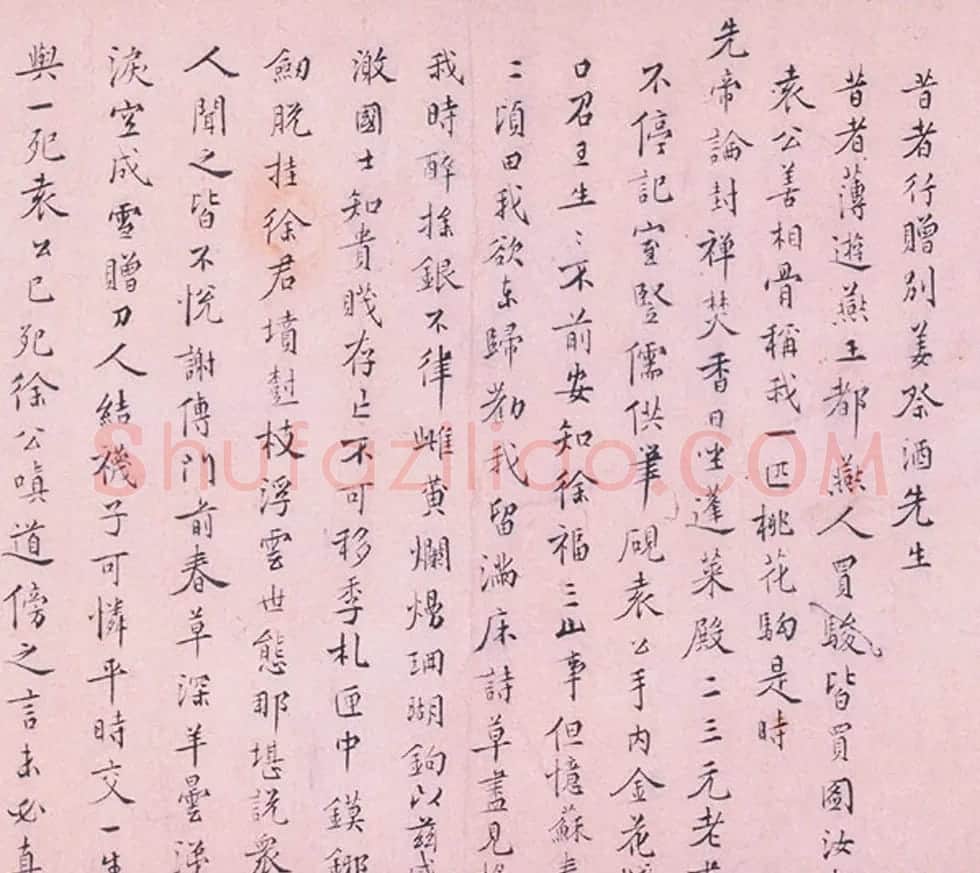 昔者行贈別姜祭酒先生
昔者薄遊燕王都燕人買駿皆買圖汝
袁公善相骨稱我一匹桃花駒是時
先帝論封禪焚香日坐蓬萊殿二三元老
不停記室豎儒供筆硯袁公手內金花
口召王生:不前安知徐福三山事但憶蘇
二頃田我欲東歸勸我留滿床詩草盡見
我時醉捺銀不律雌黃爛熳珊瑚鉤以茲
激國士知貴賤存亡不可移季札匣中鏌鋣
劍脫挂徐君墳樹枝浮雲世態那堪說眾
人聞之皆不悅謝傅門前春草深羊曇
淚空成雪贈刀人結襪子可憐平時交一生
與一死袁公已死徐公嗔道傍之言未必真
Shufazilico.COM